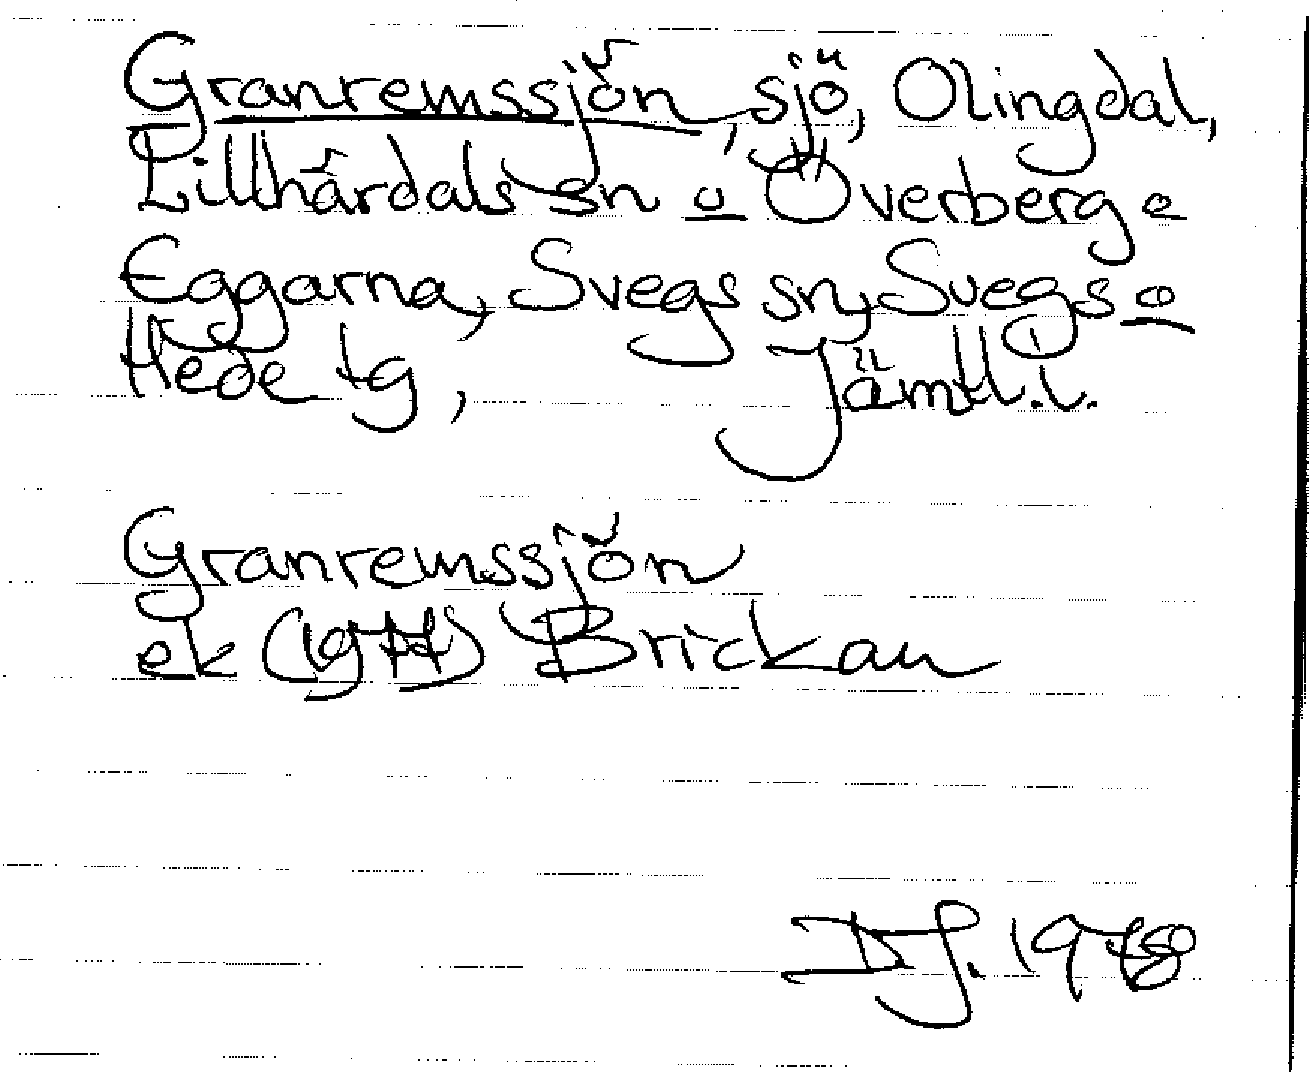 Granremssjön, sjö, Olingdal,
Lillhärdals sn o Överberg o
Eggarna, Svegs sn, Svegs o
Hede tg, Jämtl.l.
Granremssjön
ek (1977) Brickan
DJ. 1978